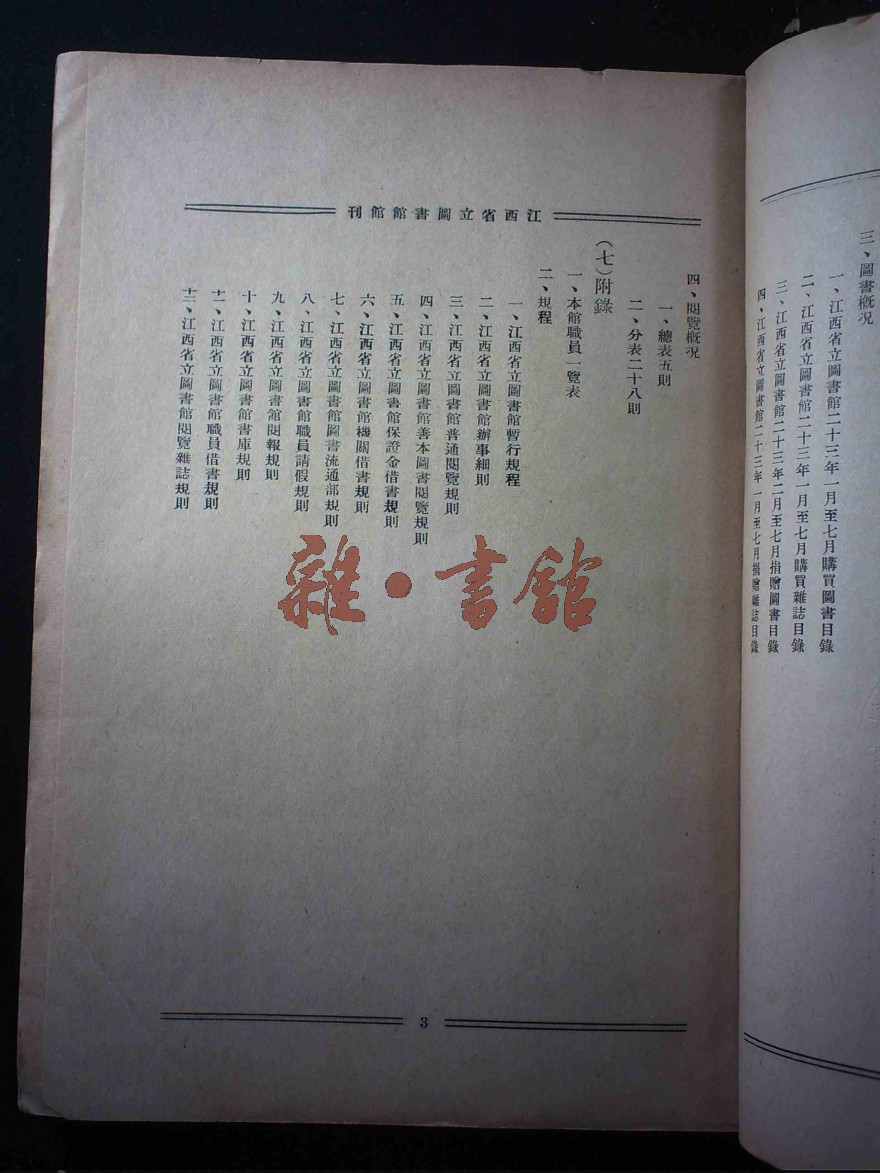 三、圖書概況
一、江西省立圖書館二十三年一月至七月購買圖書目錄
二、江西省立圖書館二十三年一月至七月購買雜誌目錄
三、江西省立圖書館二十三年二月至七月捐贈圖書目錄
四、江西省立圖書館二十三年一月至七月捐贈雜誌目錄
江西省立圖書館館刊
四、閱覽概況
一、總表五則
二、分表二十八則
(七)附錄
一、本館職員一覽表
二、規程
一、江西省立圖書館暫行規程
二、江西省立圖書館辦事細則
三、江西省立圖書館普通閱覽規則
四、江西省立圖書館善本圖書閱覽規則
五、江西省立圖書館保證金借書規則
六、江西省立圖書館機關借書規則
七、江西省立圖書館圖書流通部規則
八、江西省立圖書館職員請假規則
九、江西省立圖書館閱報規則
十、江西省立圖書館書庫規則
十一、江西省立圖書館職員借書規則
十二、江西省立圖書館閱覽雜誌規則
3
雜·書館